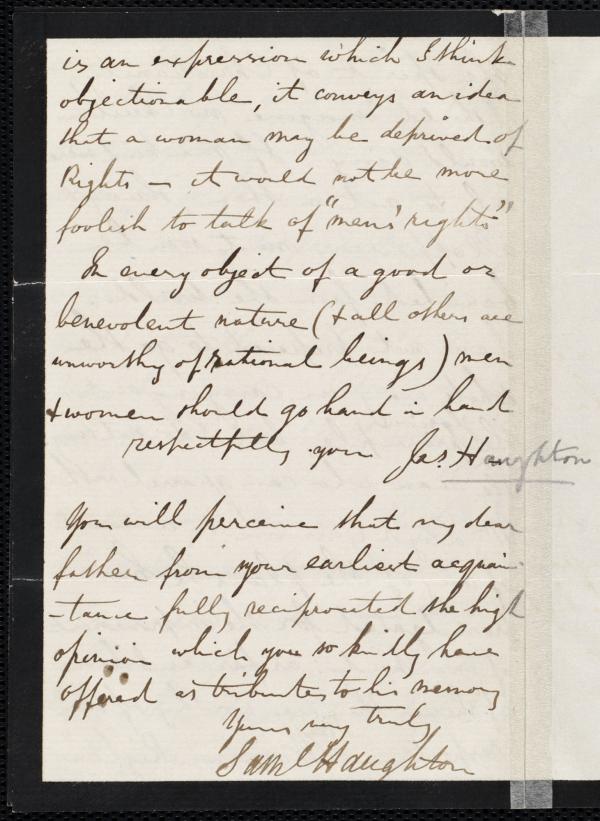 is an expression which I think
objectionable, it conveys an idea
that a woman may be deprived of
Rights — it would not be more
foolish to talk of "men's rights"
In every object of a good or
benevolent nature (& all others are
unworthy of rational beings) men
& women should go hand in hand
respectfully yours Jas. Haughton
You will perceive that my dear
father from your earliest acquain-
-tance fully reciprocated the high
opinion which you so kindly have
offered as tributes to his memory
Yours very truly
Saml Haughton